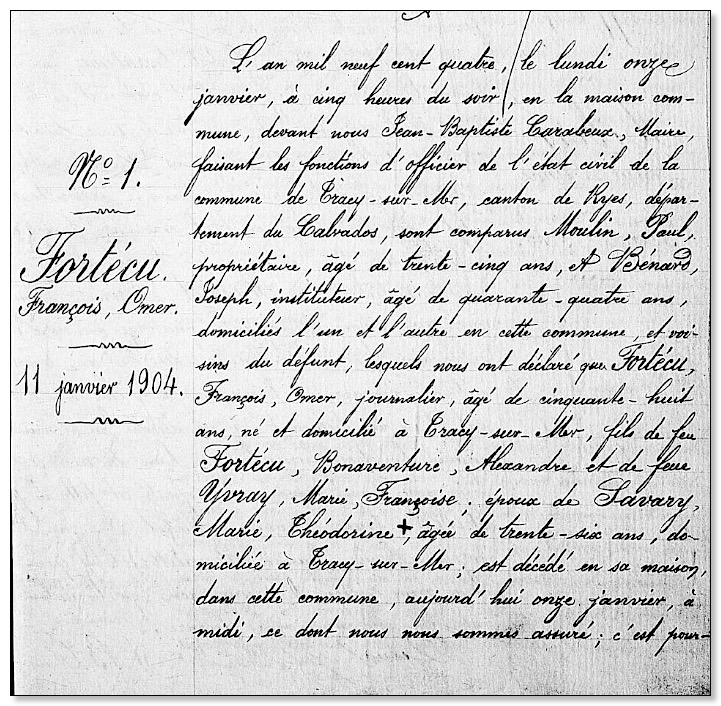 N° 1.
Fortécu.
François, Omer.
11 janvier 1904.
L'an mil neuf cent quatre, le lundi onze
janvier, à cinq heures du soir, en la maison com-
mune, devant nous Jean-Baptiste Carabeux, Maire,
faisant les fonctions d'officier de l'état civil de la
commune de Tracy-sur-Mer, canton de Ryes, dépar-
tement du Calvados, sont comparus Moulin, Paul,
propriétaire, âgé de trente-cinq ans, et Bénard,
Joseph, instituteur, âgé de quarante-quatre ans,
domiciliés l'un et l'autre en cette commune, et voi-
sins du défunt, lesquels nous ont déclaré que Fortécu,
François, Omer, journalier, âgé de cinquante-huit
ans, né et domicilié à Tracy-sur-Mer, fils de feu
Fortécu, Bonaventure, Alexandre et de feue
Yvray, Marie, Françoise; époux de Savary,
Marie, Théodorine +, âgée de trente-six ans, do-
miciliée à Tracy-sur-Mer; est décédé en sa maison,
dans cette commune, aujourd'hui onze janvier, à
midi, ce dont nous nous sommes assuré; c'est pour-